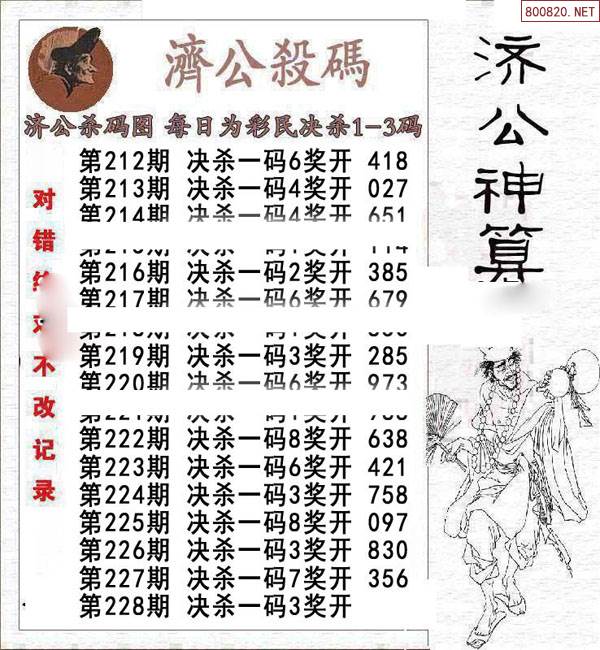 800820.NET
濟公殺碼
济公杀码图 每日为彩民决杀1-3码
第212期 决杀一码6奖开 418
第213期 决杀一码4奖开 027
第214期 决杀一码4奖开 651
第216期 决杀一码2奖开 385
第217期 决杀一码6奖开 679
第219期 决杀一码3奖开 285
第220期 决杀一码6奖开 973
第222期 决杀一码8奖开 638
第223期 决杀一码6奖开 421
第224期 决杀一码3奖开 758
第225期 决杀一码8奖开 097
第226期 决杀一码3奖开 830
第227期 决杀一码7奖开 356
第228期 决杀一码3奖开
对错
不改记录
济公神算